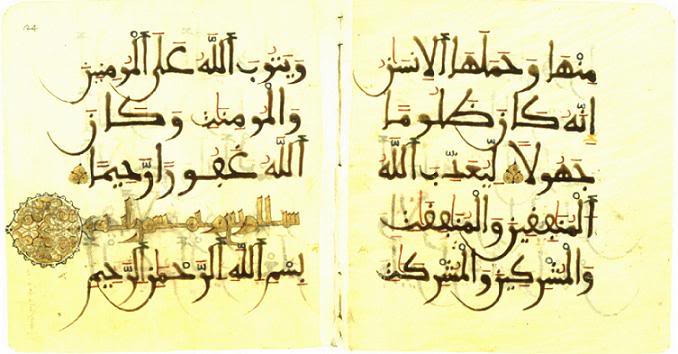 منها وحملها الانسن
انه كان ظلوما
جهولا ليعذب الله
المنفقين والمنفقت
والمشركين والمشركت
ويتوب الله على المومنين
والمومنت وكان
الله غفورا رحيما
بسم الله الرحمن الرحيم